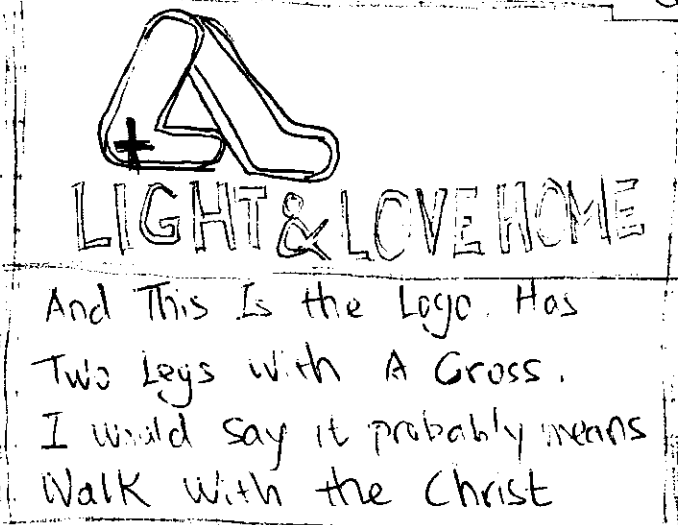 LIGHT & LOVE HOME
And This Is the Logo. Has
Two Legs With A Cross.
I would say it probably means
Walk With the Christ